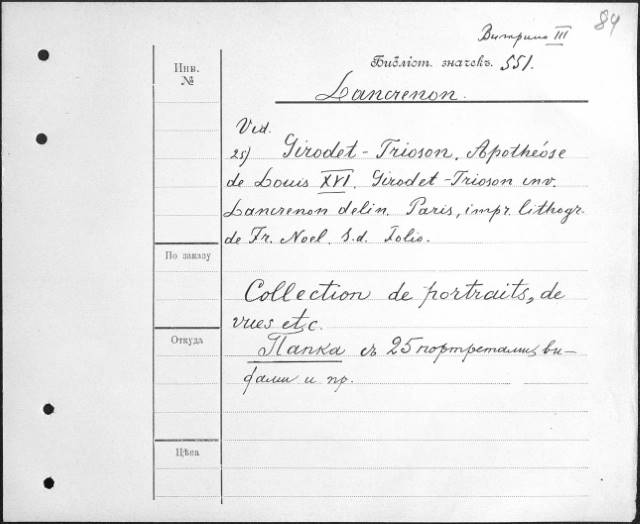 84
Витрина III
Инв. №
Библіот. значекъ 551.
Lancrenon.
Vid.
25) Girodet-Trioson. Apothéose
de Louis XVI. Girodet-Trioson inv.
Lancrenon delin. Paris, impr. lithogr.
de Fr. Noel. S.d. Folio.
По заказу
Collection de portraits, de
vues etc.
Откуда
Папка съ 25 портретами, ви-
дами и пр.
Цѣна